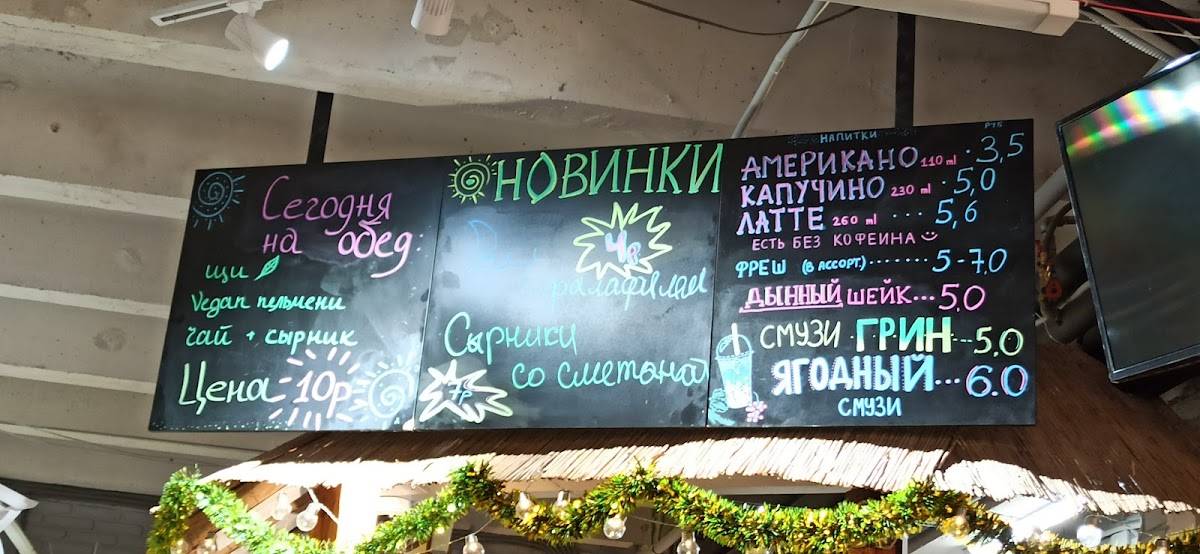 Сегодня
на обед:
щи
Vegan пельмени
чай + сырник
Цена 10р
НОВИНКИ
4р
Сырники
со сметаной
7р
НАПИТКИ РУБ
АМЕРИКАНО 110 ml · 3,5
КАПУЧИНО 230 ml · 5,0
ЛАТТЕ 260 ml ··· 5,6
ЕСТЬ БЕЗ КОФЕИНА
ФРЕШ (В АССОРТ.) ······· 5-7,0
ДЫННЫЙ ШЕЙК... 5,0
СМУЗИ ГРИН ... 5,0
ЯГОДНЫЙ... 6.0
СМУЗИ